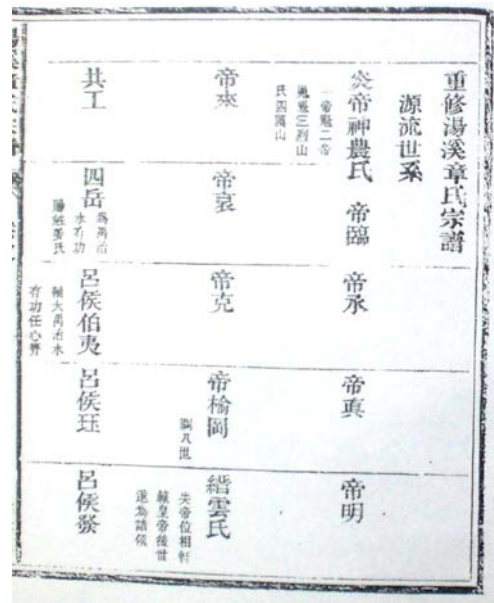 重修湯溪章氏宗譜
源流世系
炎帝神農氏
氏四厲山
帝臨
帝承
帝真
帝明
帝來
帝哀
帝克
帝榆岡
縉雲氏
失帝位相軒
轅皇帝後世
為諸侯
共工
四岳
為禹治
水有功
賜姓姜氏
呂侯伯夷
輔大禹治水
有功任心膂
呂侯珏
呂侯發